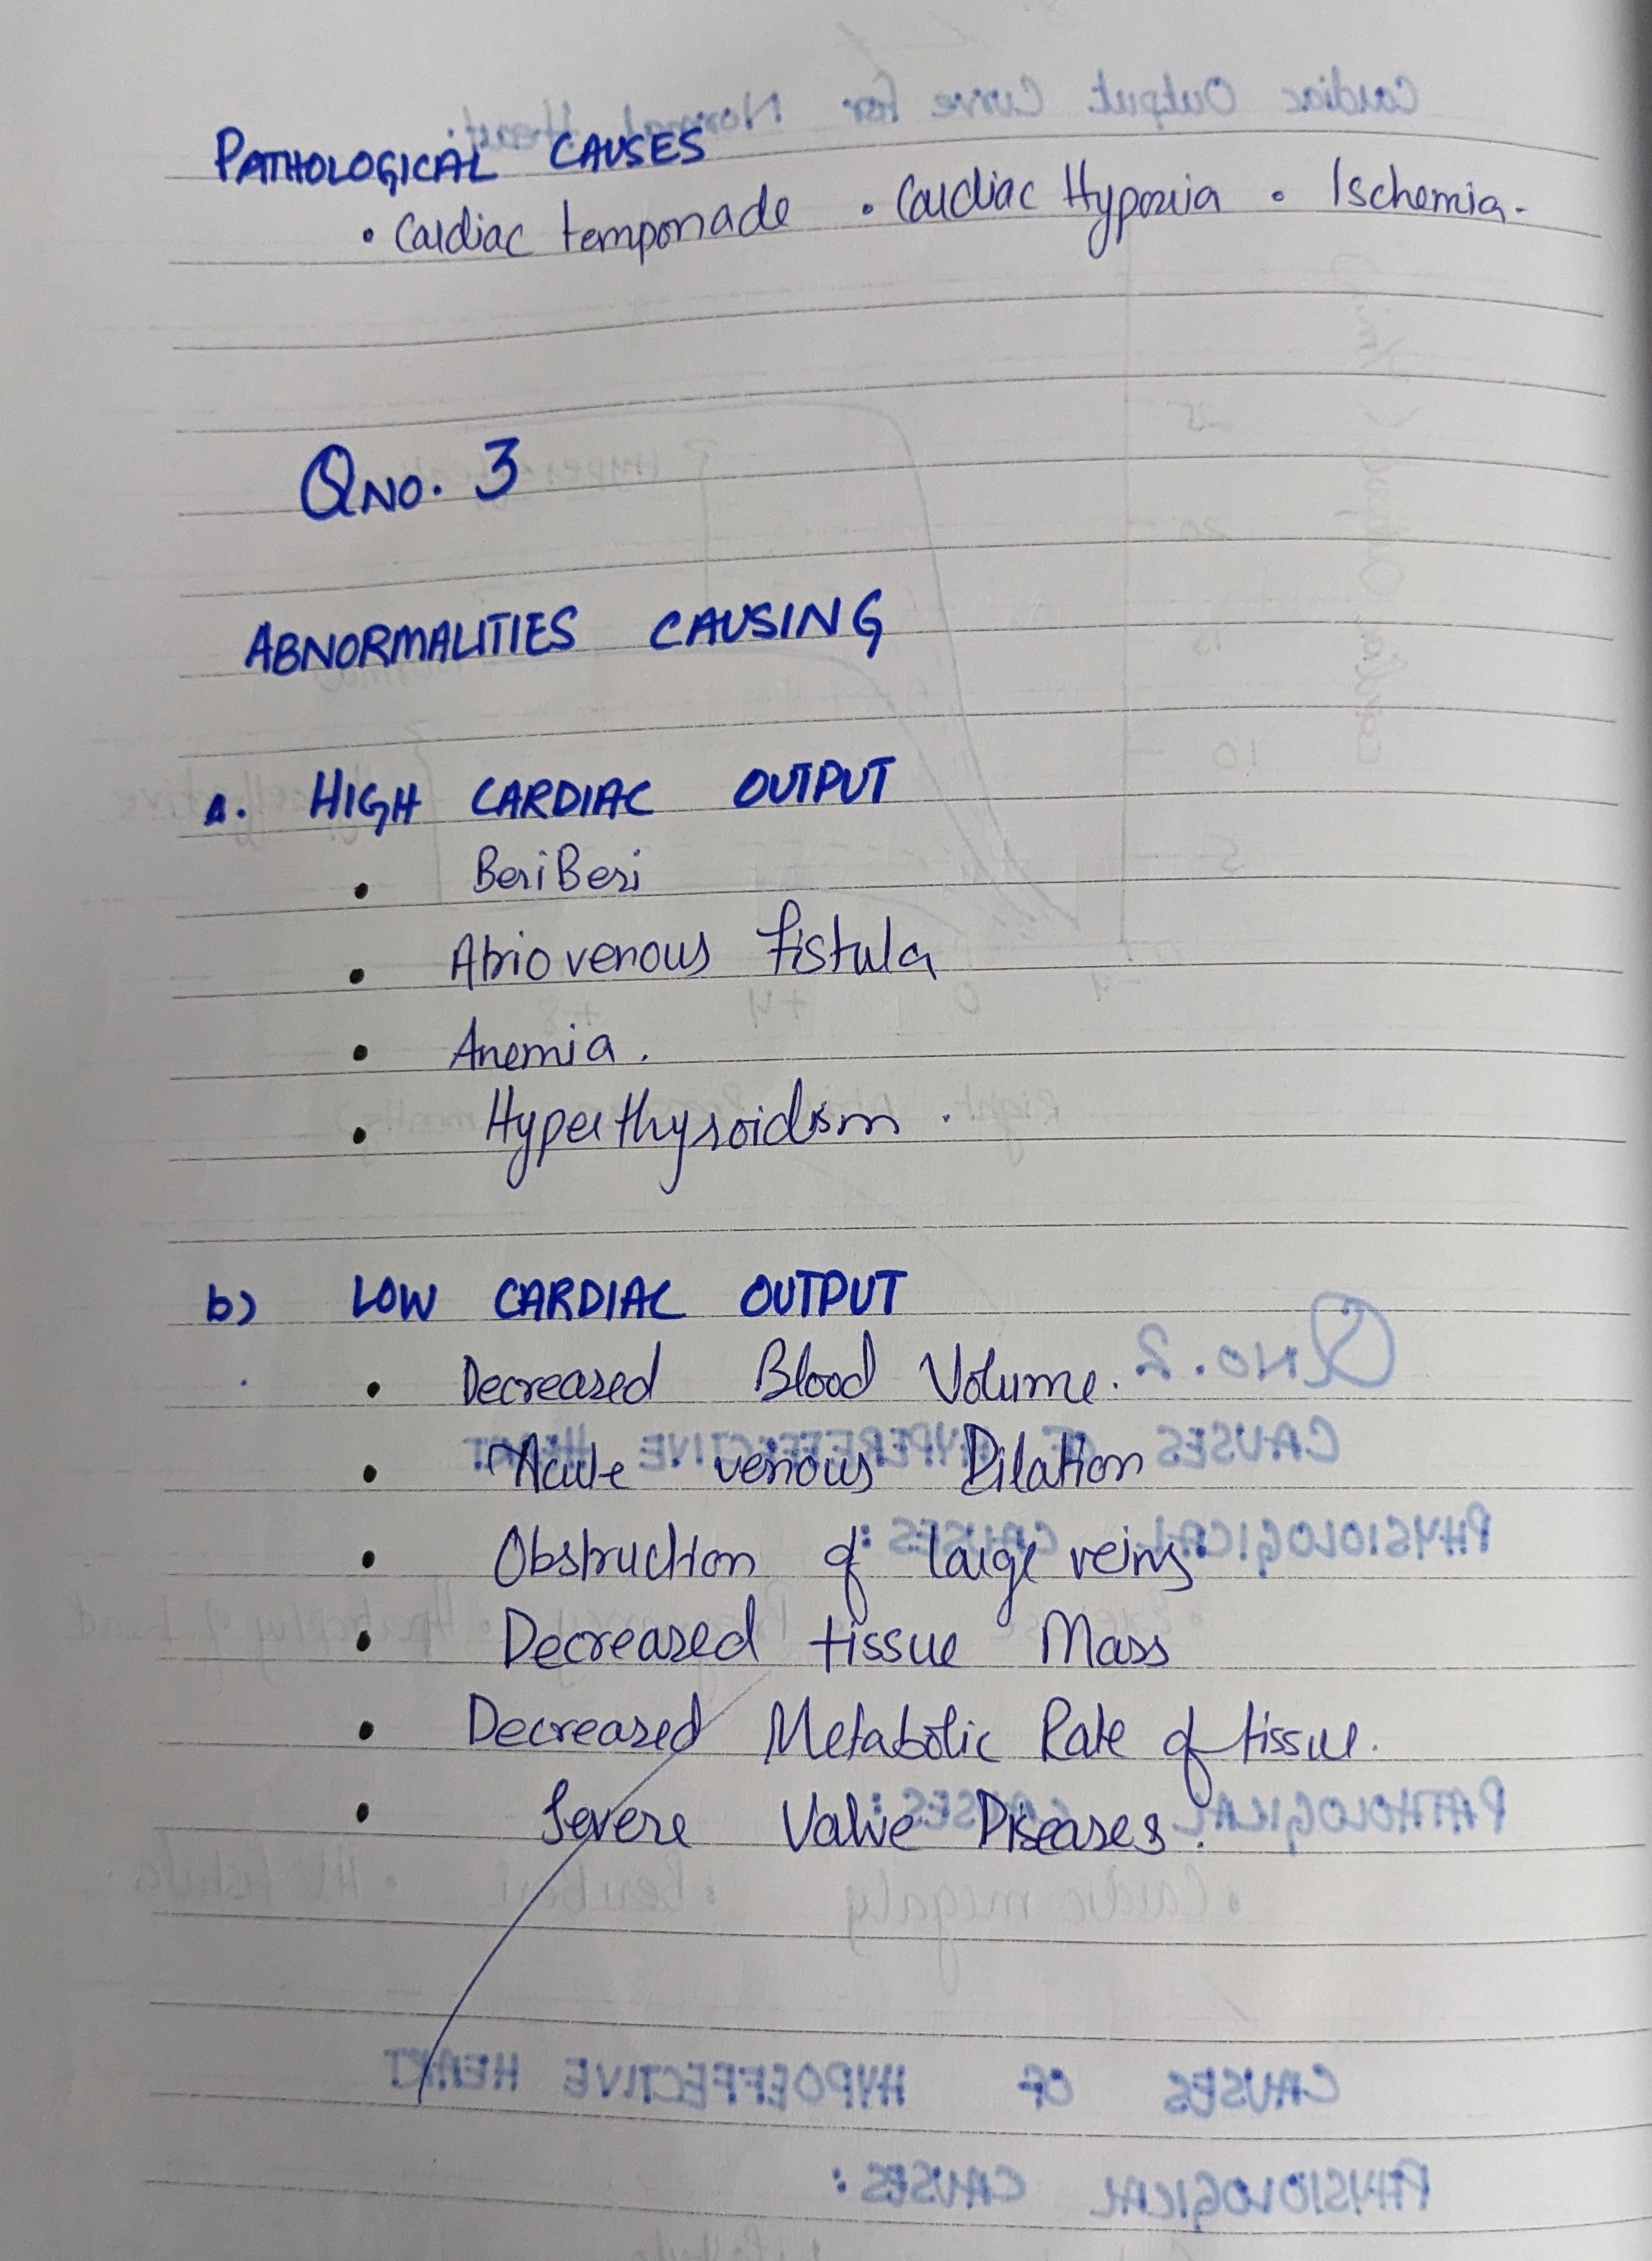 PATHOLOGICAL CAUSES
• Cardiac temponade • Cardiac Hypoxia • Ischemia.
QNO. 3
ABNORMALITIES CAUSING
a. HIGH CARDIAC OUTPUT
• BeriBeri
• Atriovenous fistula
• Anemia.
• Hyperthyroidism.
b) LOW CARDIAC OUTPUT
• Decreased Blood Volume.
• Acute venous Dilation
• Obstruction of large veins
• Decreased tissue Mass
• Decreased Metabolic Rate of tissue.
• Severe Valve Diseases.